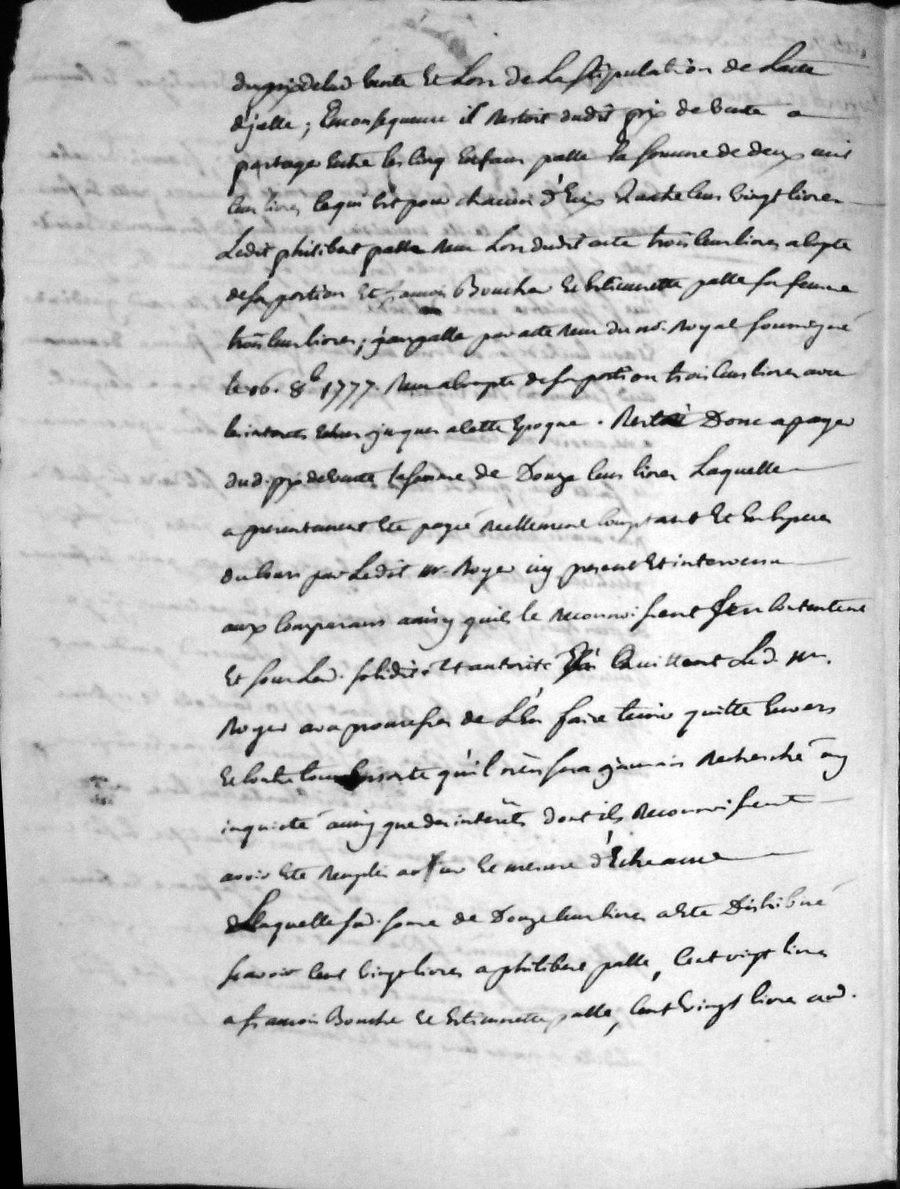 du prix de lad. vente et Lors de La stipulation de Lacte
d'jcelle; En consequence il Restoit dudit prix de vente a
partager Entre les cinq Enfans palle la somme de deux mil
cent livres ce qui Est pour chacun d'Eux quatre cens vingt livres
Ledit philibert palle Recu Lors dudit acte trois cens livres a compte
de sa portion Et francois Boucher Et Estiennette palle sa femme
trois cens livres; palle par acte Recu du no. Royal soussigné
le 16. 8b. 1777. Recu a compte de sa portion trois cens livres avec
les interets Echus jusques a cette Epoque. Reste Donc a payer
dud. prix de vente la somme de Douze cens livres Laquelle
a presentement Ete payée Reellement comptant Et En Especes
du cours par Ledit sr. Royer icy present Et intervenu
aux comparans ainsy quils le Reconnoissent s'en contentent
Et sous Lad. solidité Et autorité quittent Led. sr.
Royer avec promesses de L'En faire tenir quitte Envers
Et contre tous Ensorte qu'il n'En sera jamais Recherché ny
inquieté ainsy que des interets dont ils Reconnoissent
avoir Ete Remplis au fur Et mesure d'Echeance
De Laquelle sd. some de Douze cens livres a Ete Distribué
scavoir cent vingt livres a philibert palle, Cent vingt livres
a francois Bouche Et Estiennette palle, cent vingt livres aud.